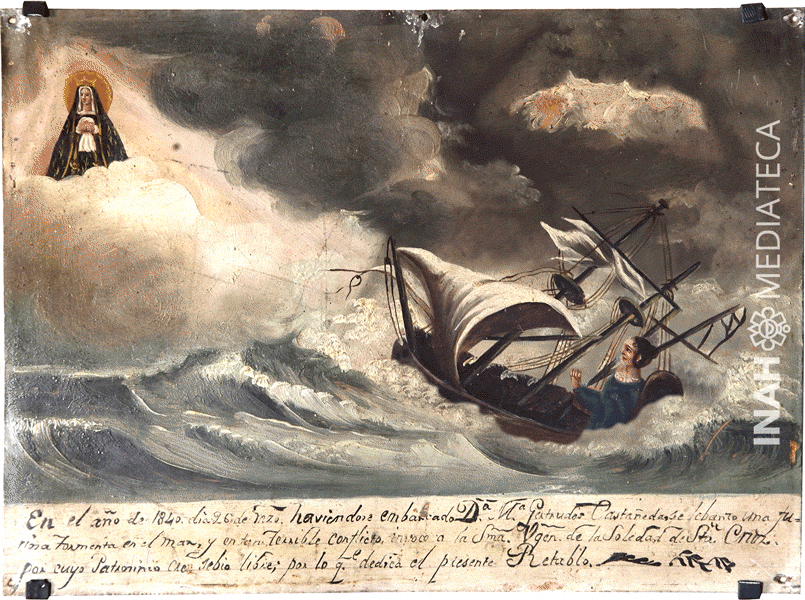 En el año de 1840, dia 26 de haviendose embarcado Dª. Mª. Gertrudes Castañeda, se lebanto una fu-
riosa tormenta en el mar, y en tan terrible conflicto, invoco a la Sma. Vgen. de la Soledad de Sta. Cruz.
por cuyo Patrocinio se bio libre; por lo qe. dedica el presente Retablo.
INAH MEDIATECA